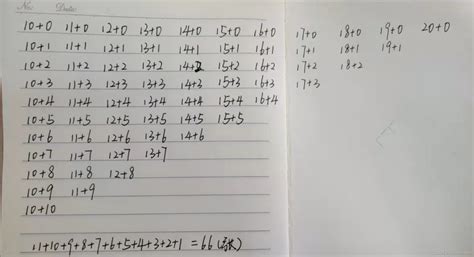 No. Date:
10+0 11+0 12+0 13+0 14+0 15+0 16+0
10+1 11+1 12+1 13+1 14+1 15+1 16+1
10+2 11+2 12+2 13+2 14+2 15+2 16+2
10+3 11+3 12+3 13+3 14+3 15+3 16+3
10+4 11+4 12+4 13+4 14+4 15+4 16+4
10+5 11+5 12+5 13+5 14+5 15+5
10+6 11+6 12+6 13+6 14+6
10+7 11+7 12+7 13+7
10+8 11+8 12+8
10+9 11+9
10+10
11+10+9+8+7+6+5+4+3+2+1=66(张)
17+0 18+0 19+0 20+0
17+1 18+1 19+1
17+2 18+2
17+3